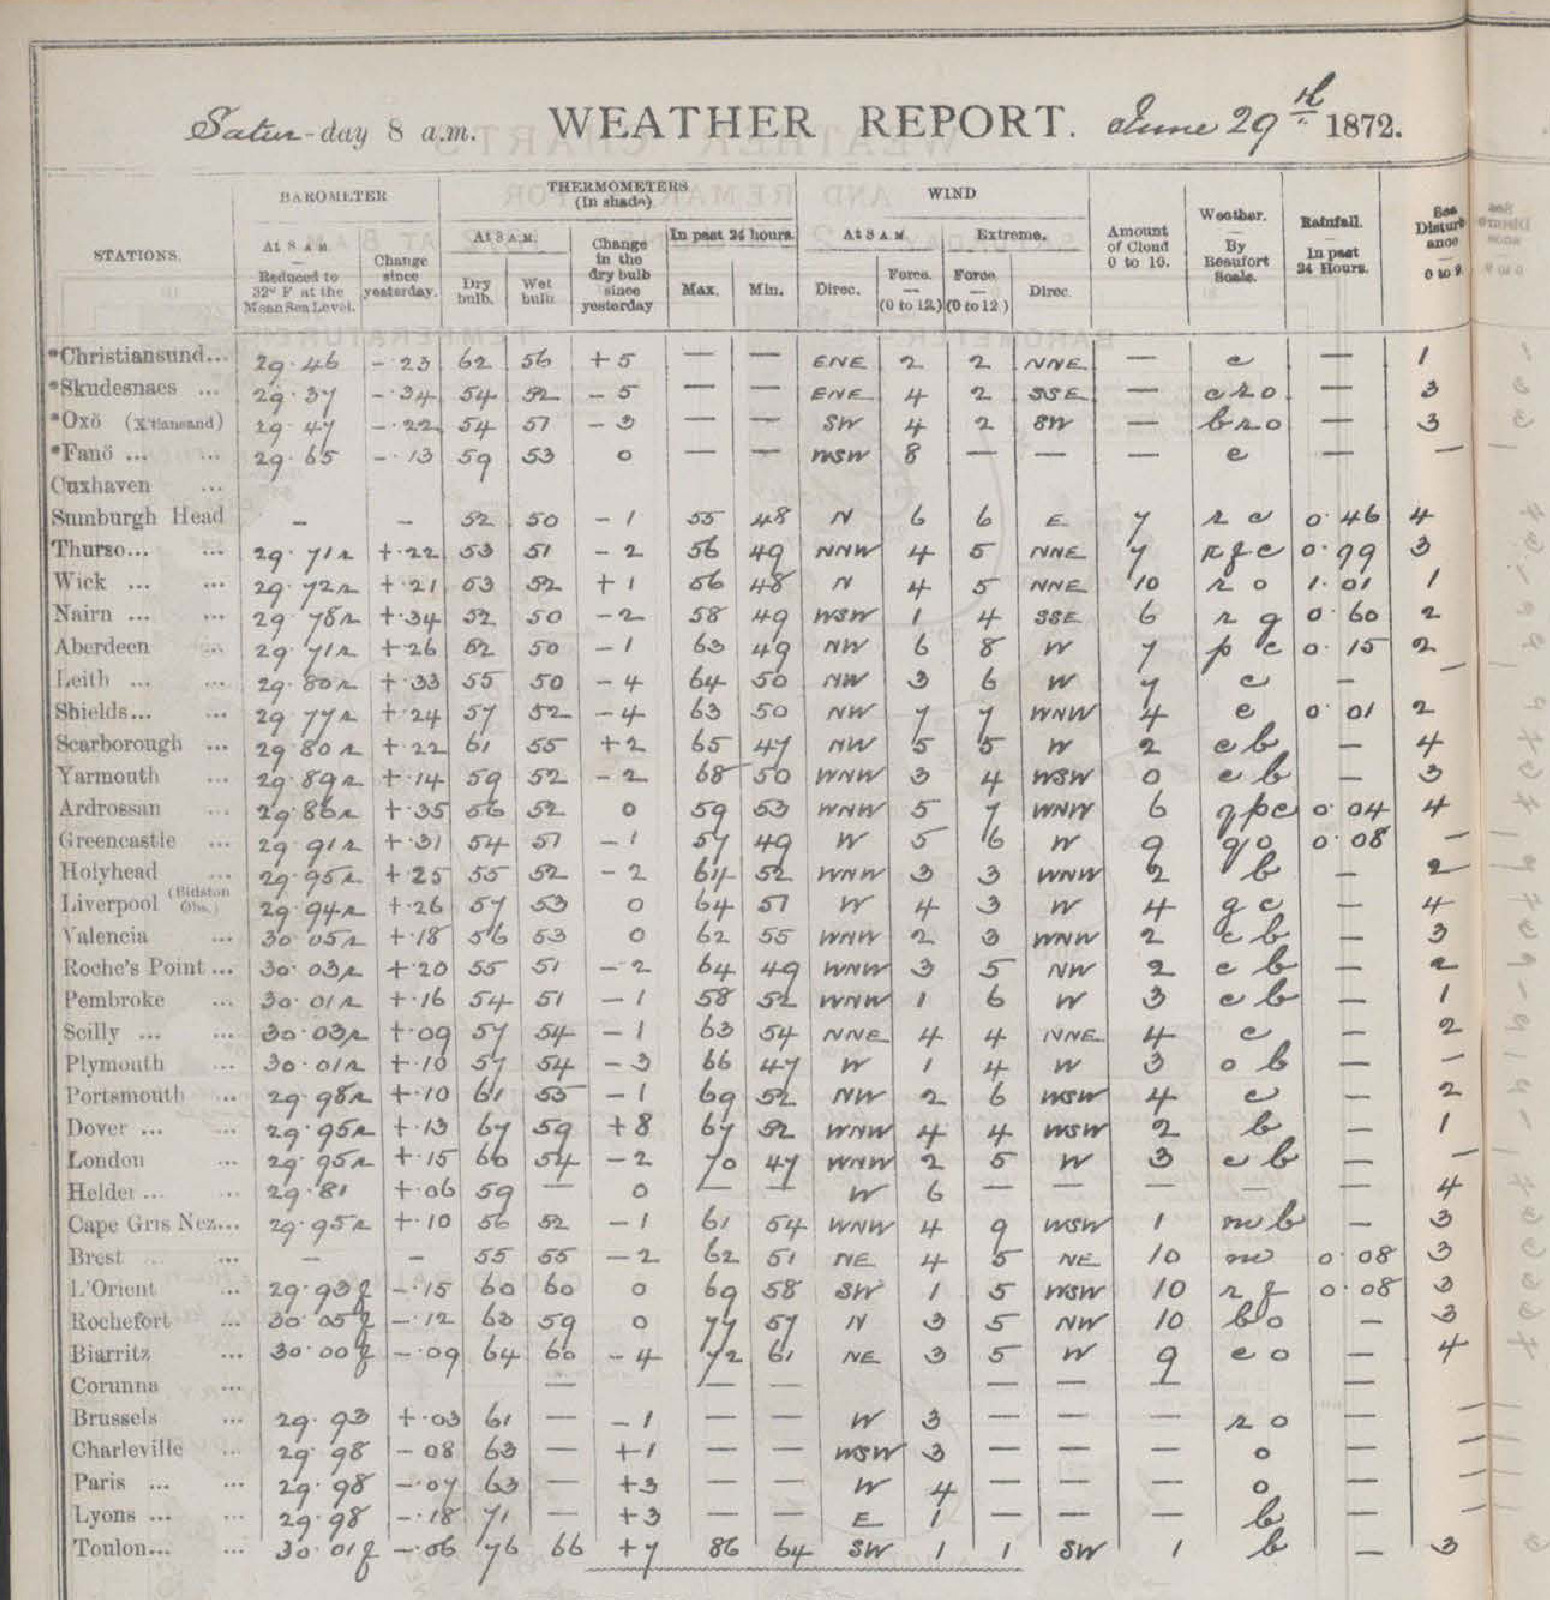 Satur-day 8 a.m. WEATHER REPORT. June 29th 1872.
STATIONS. BAROMETER THERMOMETERS (In shade) WIND Amount of Cloud 0 to 10. Weather. By Beaufort Scale. Rainfall. In past 24 Hours. Sea Disturbance 0 to 9
At 8 A M Reduced to 32° F at the Mean Sea Level. Change since yesterday. At 8 A.M. Change in the dry bulb since yesterday In past 24 hours. At 8 A M Extreme.
Dry bulb. Wet bulb Max. Min. Direc. Force. — (0 to 12.) Force. — (0 to 12) Direc.
*Christiansund... 29.46 -.23 62 56 +5 — — ENE 2 2 NNE — c — 1
*Skudesnaes ... 29.37 -.34 54 52 -5 — — ENE 4 2 SSE — cro — 3
*Oxö (X'tiansand) 29.47 -.22 54 51 -3 — — SW 4 2 SW — bro — 3
*Fanö ... ... 29.65 -.13 59 53 0 — — WSW 8 — — — c — —
Cuxhaven ...
Sumburgh Head - - 52 50 -1 55 48 N 6 6 E 7 r c 0.46 4
Thurso... ... 29.71r +.22 53 51 -2 56 49 NNW 4 5 NNE 7 rfc 0.99 3
Wick ... ... 29.72r +.21 53 52 +1 56 48 N 4 5 NNE 10 r o 1.01 1
Nairn ... ... 29 78r +.34 52 50 -2 58 49 WSW 1 4 SSE 6 r q 0.60 2
Aberdeen ... 29.71r +.26 52 50 -1 63 49 NW 6 8 W 7 p c 0.15 2
Leith ... ... 29.80r +.33 55 50 -4 64 50 NW 3 6 W 7 c - —
Shields... ... 29 77r +.24 57 52 -4 63 50 NW 7 7 WNW 4 c 0.01 2
Scarborough ... 29.80r +.22 61 55 +2 65 47 NW 5 5 W 2 cb — 4
Yarmouth ... 29.89r +.14 59 52 -2 68 50 WNW 3 4 WSW 0 c b — 3
Ardrossan ... 29.86r +.35 56 52 0 59 53 WNW 5 7 WNW 6 qpc 0.04 4
Greencastle ... 29.91r +.31 54 51 -1 57 49 W 5 6 W 9 qo 0.08 —
Holyhead ... 29.95r +.25 55 52 -2 61 52 WNW 3 3 WNW 2 b — 2
Liverpool (Bidston Obs.) 29.94r +.26 57 53 0 64 51 W 4 3 W 4 qc — 4
Valencia ... 30.05r +.18 56 53 0 62 55 WNW 2 3 WNW 2 cb — 3
Roche's Point ... 30.03r +.20 55 51 -2 64 49 WNW 3 5 NW 2 c b — 2
Pembroke ... 30.01r +.16 54 51 -1 58 52 WNW 1 6 W 3 c b — 1
Scilly ... ... 30.03r +.09 57 54 -1 63 54 NNE 4 4 NNE 4 c — 2
Plymouth ... 30.01r +.10 57 54 -3 66 47 W 1 4 W 3 o b — —
Portsmouth ... 29.98r +.10 61 55 -1 69 52 NW 2 6 WSW 4 c — 2
Dover ... ... 29.95r +.13 67 59 +8 67 52 WNW 4 4 WSW 2 b — 1
London ... 29.95r +.15 60 54 -2 70 47 WNW 2 5 W 3 cb — —
Helder ... ... 29.81 +.06 59 — 0 — — W 6 — — — — — 4
Cape Gris Nez... 29.95r +.10 56 52 -1 61 54 WNW 4 9 WSW 1 mb — 3
Brest ... ... — - 55 55 -2 62 51 NE 4 5 NE 10 m 0.08 3
L'Orient ... 29.93f -.15 60 60 0 69 58 SW 1 5 WSW 10 r f 0.08 3
Rochefort ... 30.05f -.12 63 59 0 77 57 N 3 5 NW 10 bo — 3
Biarritz ... 30.00f -.09 64 60 -4 72 61 NE 3 5 W 9 co — 4
Corunna ... — — — — — — —
Brussels ... 29.93 +.03 61 — -1 — — W 3 — — — r o — —
Charleville ... 29.98 -08 63 — +1 — — WSW 3 — — — o — —
Paris ... ... 29.98 -.07 63 — +3 — — W 4 — — — o — —
Lyons ... ... 29.98 -.18 71 — +3 — — E 1 — — — b — —
Toulon... ... 30.01f -.06 76 66 +7 86 64 SW 1 1 SW 1 b — 3